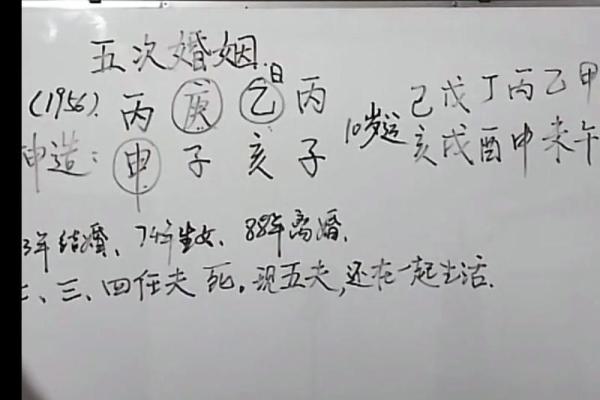 五次婚姻.
日
(1956). 丙 庚 乙 丙
造: 申 子 亥 子
10岁运
己 戊 丁 丙 乙 甲
亥 戌 酉 申 未 午
3年结婚、74年生女、88年离婚.
、三、四任夫死。现五夫,还在一起生活.